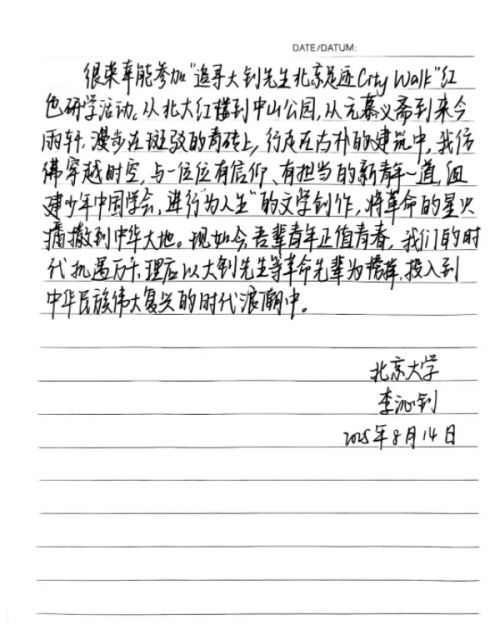 DATE/DATUM:
很荣幸能参加“追寻大钊先生北京足迹City Walk”红
色研学活动。从北大红楼到中山公园,从亢慕义斋到来今
雨轩,漫步在斑驳的青砖上,行走在古朴的建筑中,我仿
佛穿越时空,与一位位有信仰、有担当的新青年一道,组
建少年中国学会,进行“为人生”的文学创作,将革命的星火
播撒到中华大地。现如今,吾辈青年正值青春,我们的时
代机遇万千,理应以大钊先生等革命先辈为榜样,投入到
中华民族伟大复兴的时代浪潮中。
北京大学
李沁钊
2025年8月14日